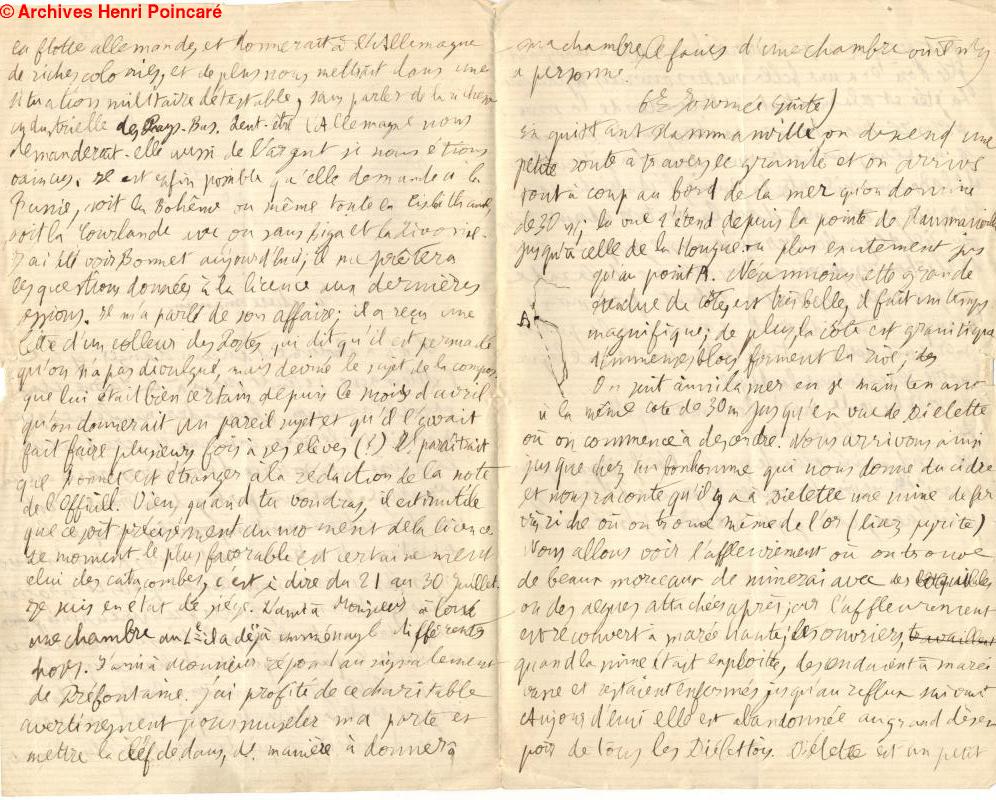 © Archives Henri Poincaré
la flotte allemande, et donnerait à l'Allemagne
de riches colonies, et de plus nous mettrait dans une
situation militaire détestable, sans parler de la richesse
industrielle des Pays-Bas. Peut-être l'Allemagne nous
demanderait-elle aussi de l'argent si nous étions
vaincus. Il est enfin possible qu'elle demande à la
Russie, soit la Bohême ou même toute la Cisleithanie
soit la Courlande avec ou sans Riga et la Livonie.
J'ai été voir Bonnet aujourd'hui, il me prêtera
les questions données à la licence aux dernières
sessions. Il m'a parlé de son affaire; il a reçu une
lettre d'un colleur des Postes qui dit qu'il est persuadé
qu'on n'a pas divulgué, mais deviné le sujet de la compos
que lui était bien certain depuis le mois d'avril
qu'on donnerait un pareil sujet et qu'il l'avait
fait faire plusieurs fois à ses élèves (!) Il paraîtrait
que Bonnet est étranger à la rédaction de la note
de l'Officiel. Viens quand tu voudras, il est inutile
que ce soit précisément au moment de la licence
Le moment le plus favorable est certainement
celui des catacombes, c'est à dire du 21 au 30 Juillet.
Je suis en état de siège. Un Monsieur à loué
une chambre au 1er il a déjà emménagé différents
objets. J'ai profité de ce charitable
avertissement pour museler ma porte et
mettre la clef dedans, de manière à donner à
ma chambre le faciès d'une chambre où il n'y
a personne.
6e Journée (suite)
En quittant Flammanville on descend une
petite route à travers le granite et on arrive
tout à coup au bord de la mer qu'on domine
de 30 m; la vue s'étend depuis la pointe de Flammanville
jusqu'à celle de la Hougue ou plus exactement jus
qu'au point A. Néanmoins cette grande
étendue de côtes est très belle, il fait un temps
A
magnifique; de plus la côte est granitique
d'immenses blocs forment la rive; des
On suit ainsi la mer en se maintenant
à la même cote de 30m jusqu'en vue de Dielette
où on commence à descendre. Nous arrivons ainsi
jusque chez un bonhomme qui nous donne du cidre
et nous raconte qu'il y a à Dielette une mine de fer
très riche où on trouve même de l'or (lisez pyrite)
Nous allons voir l'affleurement où on trouve
de beaux morceaux de minerai avec des coquillages
ou des algues attachées après; car l'affleurement
est recouvert à marée haute; les ouvriers, travaillent
quand la mine était exploitée, descendaient à marée
basse et restaient enfermés jusqu'au reflux suivant
Aujourd'hui elle est abandonnée au grand déses
poir de tous les Diélettois. Diélette est un petit